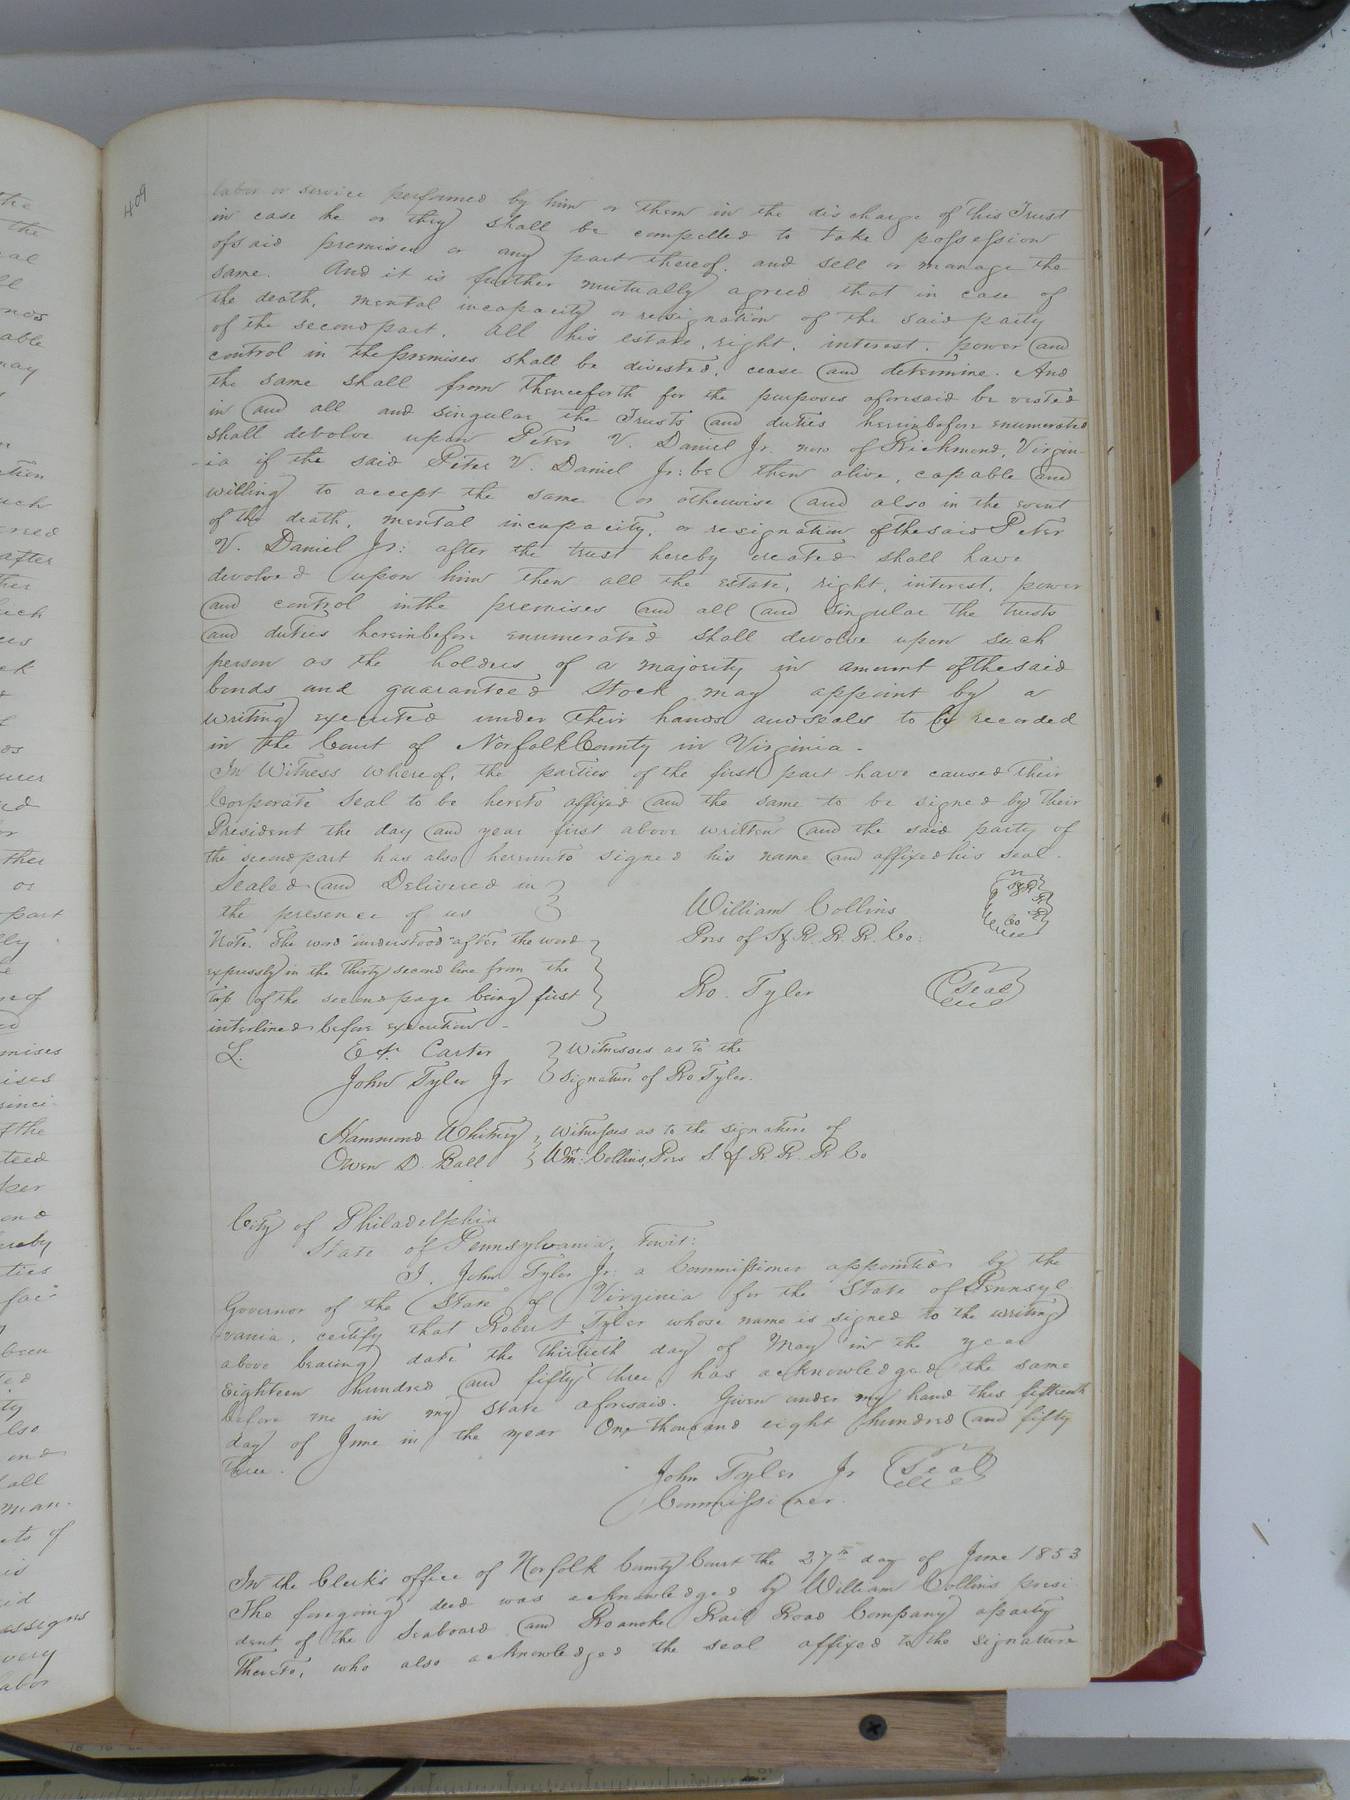 409
labor or service performed by him or them in the discharge of this Trust
in case he or they shall be compelled to take possession
of said premises or any part thereof, and sell or manage the
same. And it is further mutually agreed that in case of
the death, mental incapacity or resignation of the said party
of the second part, all his estate, right, interest, power and
control in the premises shall be divested, cease and determine. And
the same shall from thenceforth for the purposes aforesaid be vested
in and all and singular the Trusts and duties hereinbefore enumerated
shall devolve upon Peter V. Daniel Jr. now of Richmond, Virgin-
-ia if the said Peter V. Daniel Jr: be then alive, capable and
willing to accept the same or otherwise and also in the event
of the death, mental incapacity, or resignation of the said Peter
V. Daniel Jr: after the trust hereby created shall have
devolved upon him then all the estate, right, interest, power
and control in the premises and all and singular the trusts
and duties hereinbefore enumerated shall devolve upon such
person as the holders of a majority in amount of the said
bonds and guaranteed stock may appoint by a
writing executed under their hands and seals to be recorded
in the Court of Norfolk County in Virginia.
In Witness whereof, the parties of the first part have caused their
Corporate Seal to be hereto affixed and the same to be signed by their
President the day and year first above written and the said party of
the second part has also hereunto signed his name and affixed his seal.
Sealed and Delivered in
the presence of us
William Collins
Pres of S & R. R. R. Co:
Note. The word "understood" after the word
expressly in the thirty second line from the
top of the second page being first
interlined before execution -
Ro. Tyler Seal
L. E. Carter Witnesses as to the
John Tyler Jr signature of Ro Tyler.
Hammond Whitney Witnesses as to the signature of
Owen D. Ball Wm: Collins, Pres S. & R R. R Co
City of Philadelphia
State of Pennsylvania, Towit:
I, John Tyler Jr: a Commissioner appointed by the
Governor of the State of Virginia for the State of Pennsyl
vania, certify that Robert Tyler whose name is signed to the writing
above bearing date the thirtieth day of May in the year
Eighteen hundred and fifty three has acknowledged the same
before me in my State aforesaid. Given under my hand this fifteenth
day of June in the year One thousand eight hundred and fifty
three.
John Tyler Jr Seal
Commissioner.
In the Clerk's office of Norfolk County Court the 27th day of June 1853
The foregoing deed was acknowledged by William Collins presi
dent of the Seaboard and Roanoke Rail Road Company a party
thereto, who also acknowledged the seal affixed to the signature